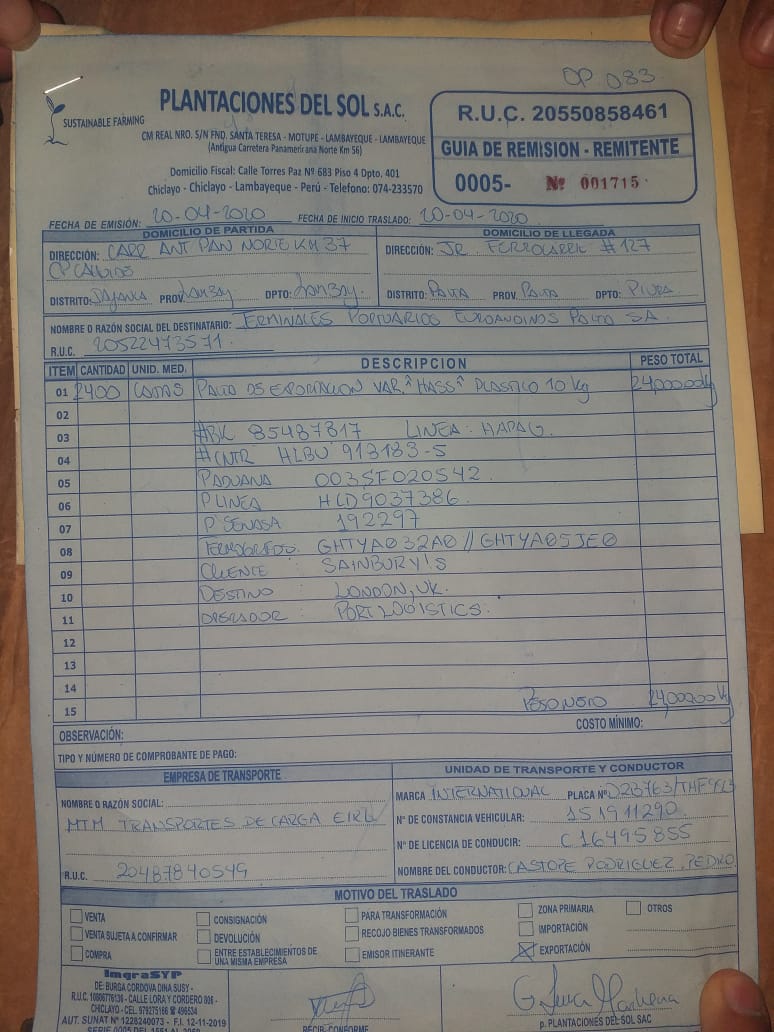 OP 083
SUSTAINABLE FARMING
PLANTACIONES DEL SOL S.A.C.
CM REAL NRO. S/N FND. SANTA TERESA - MOTUPE - LAMBAYEQUE - LAMBAYEQUE
(Antigua Carretera Panamericana Norte Km 56)
Domicilio Fiscal: Calle Torres Paz Nº 683 Piso 4 Dpto. 401
Chiclayo - Chiclayo - Lambayeque - Perú - Telefono: 074-233570
R.U.C. 20550858461
GUIA DE REMISION - REMITENTE
0005- Nº 001715
FECHA DE EMISIÓN: 20-04-2020 FECHA DE INICIO TRASLADO: 20-04-2020
DOMICILIO DE PARTIDA
DIRECCIÓN: CARR ANT PAN NORTE KM 37
DISTRITO: PROV. Lambay DPTO: Lambay.
DOMICILIO DE LLEGADA
DIRECCIÓN: JR. FERROCARRIL # 127
DISTRITO: PAITA PROV. PAITA DPTO: PIURA
NOMBRE O RAZÓN SOCIAL DEL DESTINATARIO: TERMINALES PORTUARIOS EUROANDINOS PAITA SA.
R.U.C. 20522473571.
ITEM CANTIDAD UNID. MED. DESCRIPCION PESO TOTAL
01 2400 CAJAS PALTO DE EXPORTACION VAR. "HASS" PLASTICO 10 Kg 24,000.00 Kg
02
03 #BK 85487817 LINEA: HAPAG.
04 #CNTR HLBU 913183-5
05 PADUANA 003SF020542.
06 P LINEA HLD9037386.
07 P SENASA 192297
08 TERMOGRAFO: GHTYA032A0 // GHTYA05JE0
09 CLIENTE : SAINBURY'S
10 DESTINO : LONDON, UK.
11 OPERADOR : PORTLOGISTICS.
12
13
14
15 PESO NETO 24,000.00 Kg
OBSERVACIÓN: COSTO MÍNIMO:
TIPO Y NÚMERO DE COMPROBANTE DE PAGO:
EMPRESA DE TRANSPORTE
NOMBRE O RAZÓN SOCIAL:
MTM TRANSPORTES DE CARGA EIRL
R.U.C. 20487840549
UNIDAD DE TRANSPORTE Y CONDUCTOR
MARCA INTERNATIONAL PLACA Nº
N° DE CONSTANCIA VEHICULAR: 151911290.
N° DE LICENCIA DE CONDUCIR: C16495855
NOMBRE DEL CONDUCTOR: CASTOPE RODRIGUEZ, PEDRO
MOTIVO DEL TRASLADO
VENTA CONSIGNACIÓN PARA TRANSFORMACIÓN ZONA PRIMARIA OTROS
VENTA SUJETA A CONFIRMAR DEVOLUCIÓN RECOJO BIENES TRANSFORMADOS IMPORTACIÓN
COMPRA ENTRE ESTABLECIMIENTOS DE UNA MISMA EMPRESA EMISOR ITINERANTE EXPORTACIÓN
ImgraSYP
DE: BURGA CORDOVA DINA SUSY -
R.U.C. 10806776136 - CALLE LORA Y CORDERO 806 -
CHICLAYO - CEL. 979275166 ☎ 496534
AUT. SUNAT Nº 1228240073 - F.I. 12-11-2019
SERIE 0005 DEL 1551 AL 2050
RECIBI CONFORME
p. PLANTACIONES DEL SOL SAC